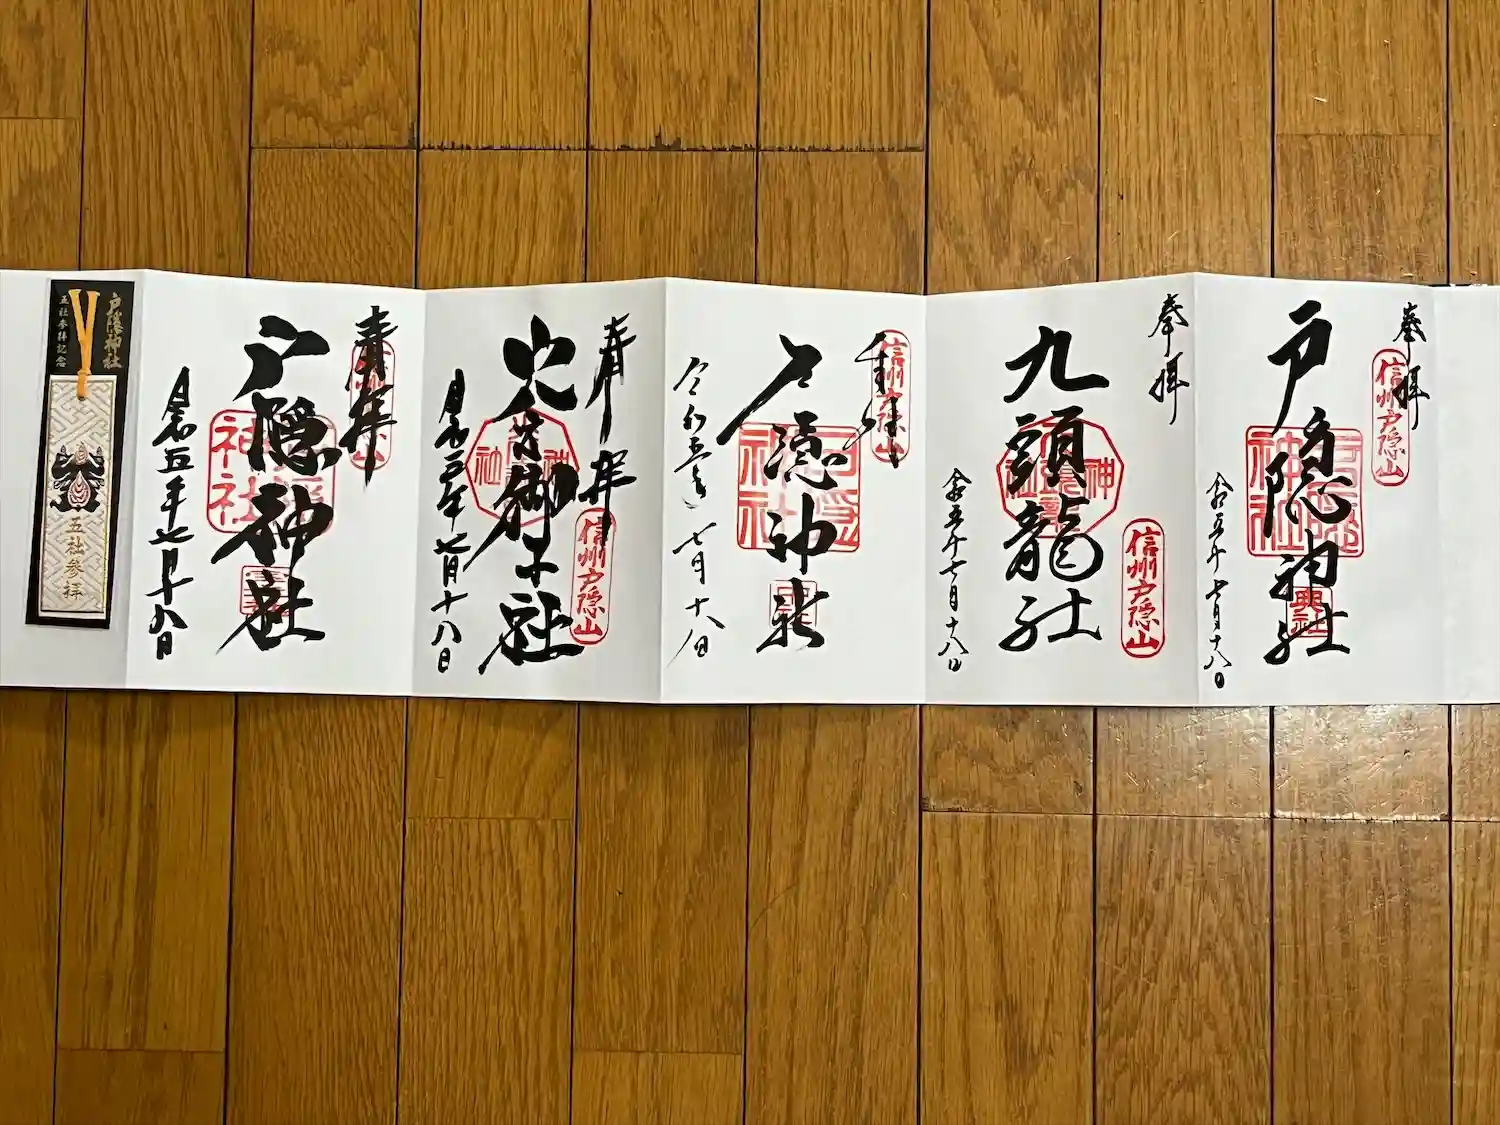 奉拝
信州戸隠山
戸隠神社
戸隠神社
奥社
令和五年七月十八日
奉拝
九頭龍社
信州戸隠山
令和五年七月十八日
奉拝
信州戸隠山
戸隠神社
戸隠神社
中社
令和五年七月十八日
奉拝
火之御子社
信州戸隠山
令和五年七月十八日
奉拝
信州戸隠山
戸隠神社
戸隠神社
令和五年七月十八日
戸隠神社
五社参拝記念
五社參拝